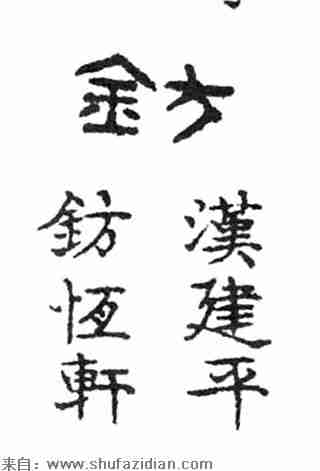 鈁
漢建平
鈁恆軒
来自：www.shufazidian.com